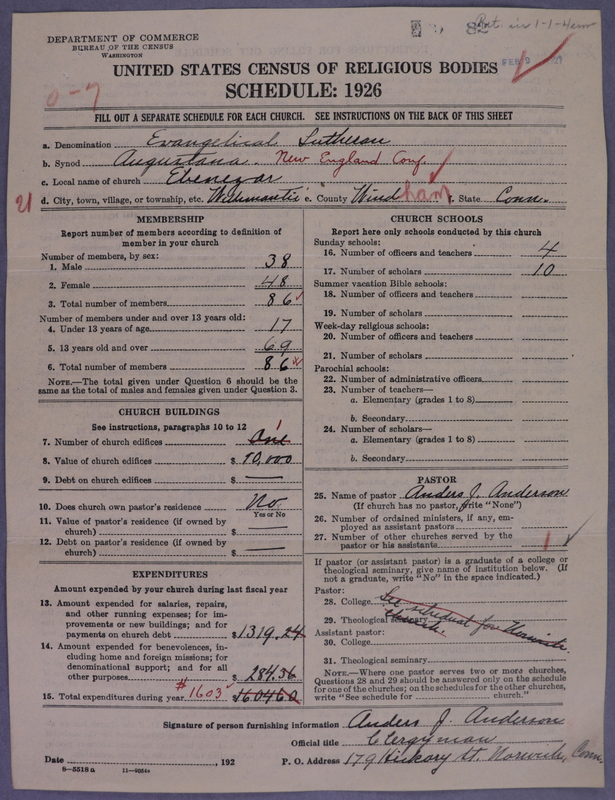 82 Ret. in 1-1-4em
DEPARTMENT OF COMMERCE
BUREAU OF THE CENSUS
WASHINGTON
FEB 9 '27
UNITED STATES CENSUS OF RELIGIOUS BODIES
SCHEDULE: 1926
0-7
FILL OUT A SEPARATE SCHEDULE FOR EACH CHURCH. SEE INSTRUCTIONS ON THE BACK OF THIS SHEET
a. Denomination Evangelical Lutheran
b. Synod Augustana. New England Conf.
c. Local name of church Ebenezar
21 d. City, town, village, or township, etc. Willimantic e. County Windham f. State Conn.
MEMBERSHIP
Report number of members according to definition of
member in your church
Number of members, by sex:
1. Male 38
2. Female 48
3. Total number of members 86
Number of members under and over 13 years old:
4. Under 13 years of age 17
5. 13 years old and over 69
6. Total number of members 86
NOTE.—The total given under Question 6 should be the
same as the total of males and females given under Question 3.
CHURCH BUILDINGS
See instructions, paragraphs 10 to 12
7. Number of church edifices One 1
8. Value of church edifices $ 10,000
9. Debt on church edifices $ —
10. Does church own pastor's residence No
Yes or No
11. Value of pastor's residence (if owned by
church) $ —
12. Debt on pastor's residence (if owned by
church) $ —
EXPENDITURES
Amount expended by your church during last fiscal year
13. Amount expended for salaries, repairs,
and other running expenses; for im-
provements or new buildings; and for
payments on church debt $1319.24
14. Amount expended for benevolences, in-
cluding home and foreign missions; for
denominational support; and for all
other purposes $ 284.36
15. Total expenditures during year $1603 $1604.60
CHURCH SCHOOLS
Report here only schools conducted by this church
Sunday schools:
16. Number of officers and teachers 4
17. Number of scholars 10
Summer vacation Bible schools:
18. Number of officers and teachers
19. Number of scholars
Week-day religious schools:
20. Number of officers and teachers
21. Number of scholars
Parochial schools:
22. Number of administrative officers
23. Number of teachers—
a. Elementary (grades 1 to 8)
b. Secondary
24. Number of scholars—
a. Elementary (grades 1 to 8)
b. Secondary
PASTOR
25. Name of pastor Anders J. Anderson
(If church has no pastor, write "None")
26. Number of ordained ministers, if any, em-
ployed as assistant pastors
27. Number of other churches served by the
pastor or his assistants 1
If pastor (or assistant pastor) is a graduate of a college or
theological seminary, give name of institution below. (If
not a graduate, write "No" in the space indicated.)
Pastor:
28. College See schedual for Norwich
29. Theological seminary Church.
Assistant pastor:
30. College
31. Theological seminary
NOTE.—Where one pastor serves two or more churches,
Questions 28 and 29 should be answered only on the schedule
for one of the churches; on the schedules for the other churches,
write "See schedule for church."
Signature of person furnishing information Anders J. Anderson
Official title Clergyman
Date , 192 P. O. Address 179 Hickory St. Norwich, Conn.
8—5518a 11—9084